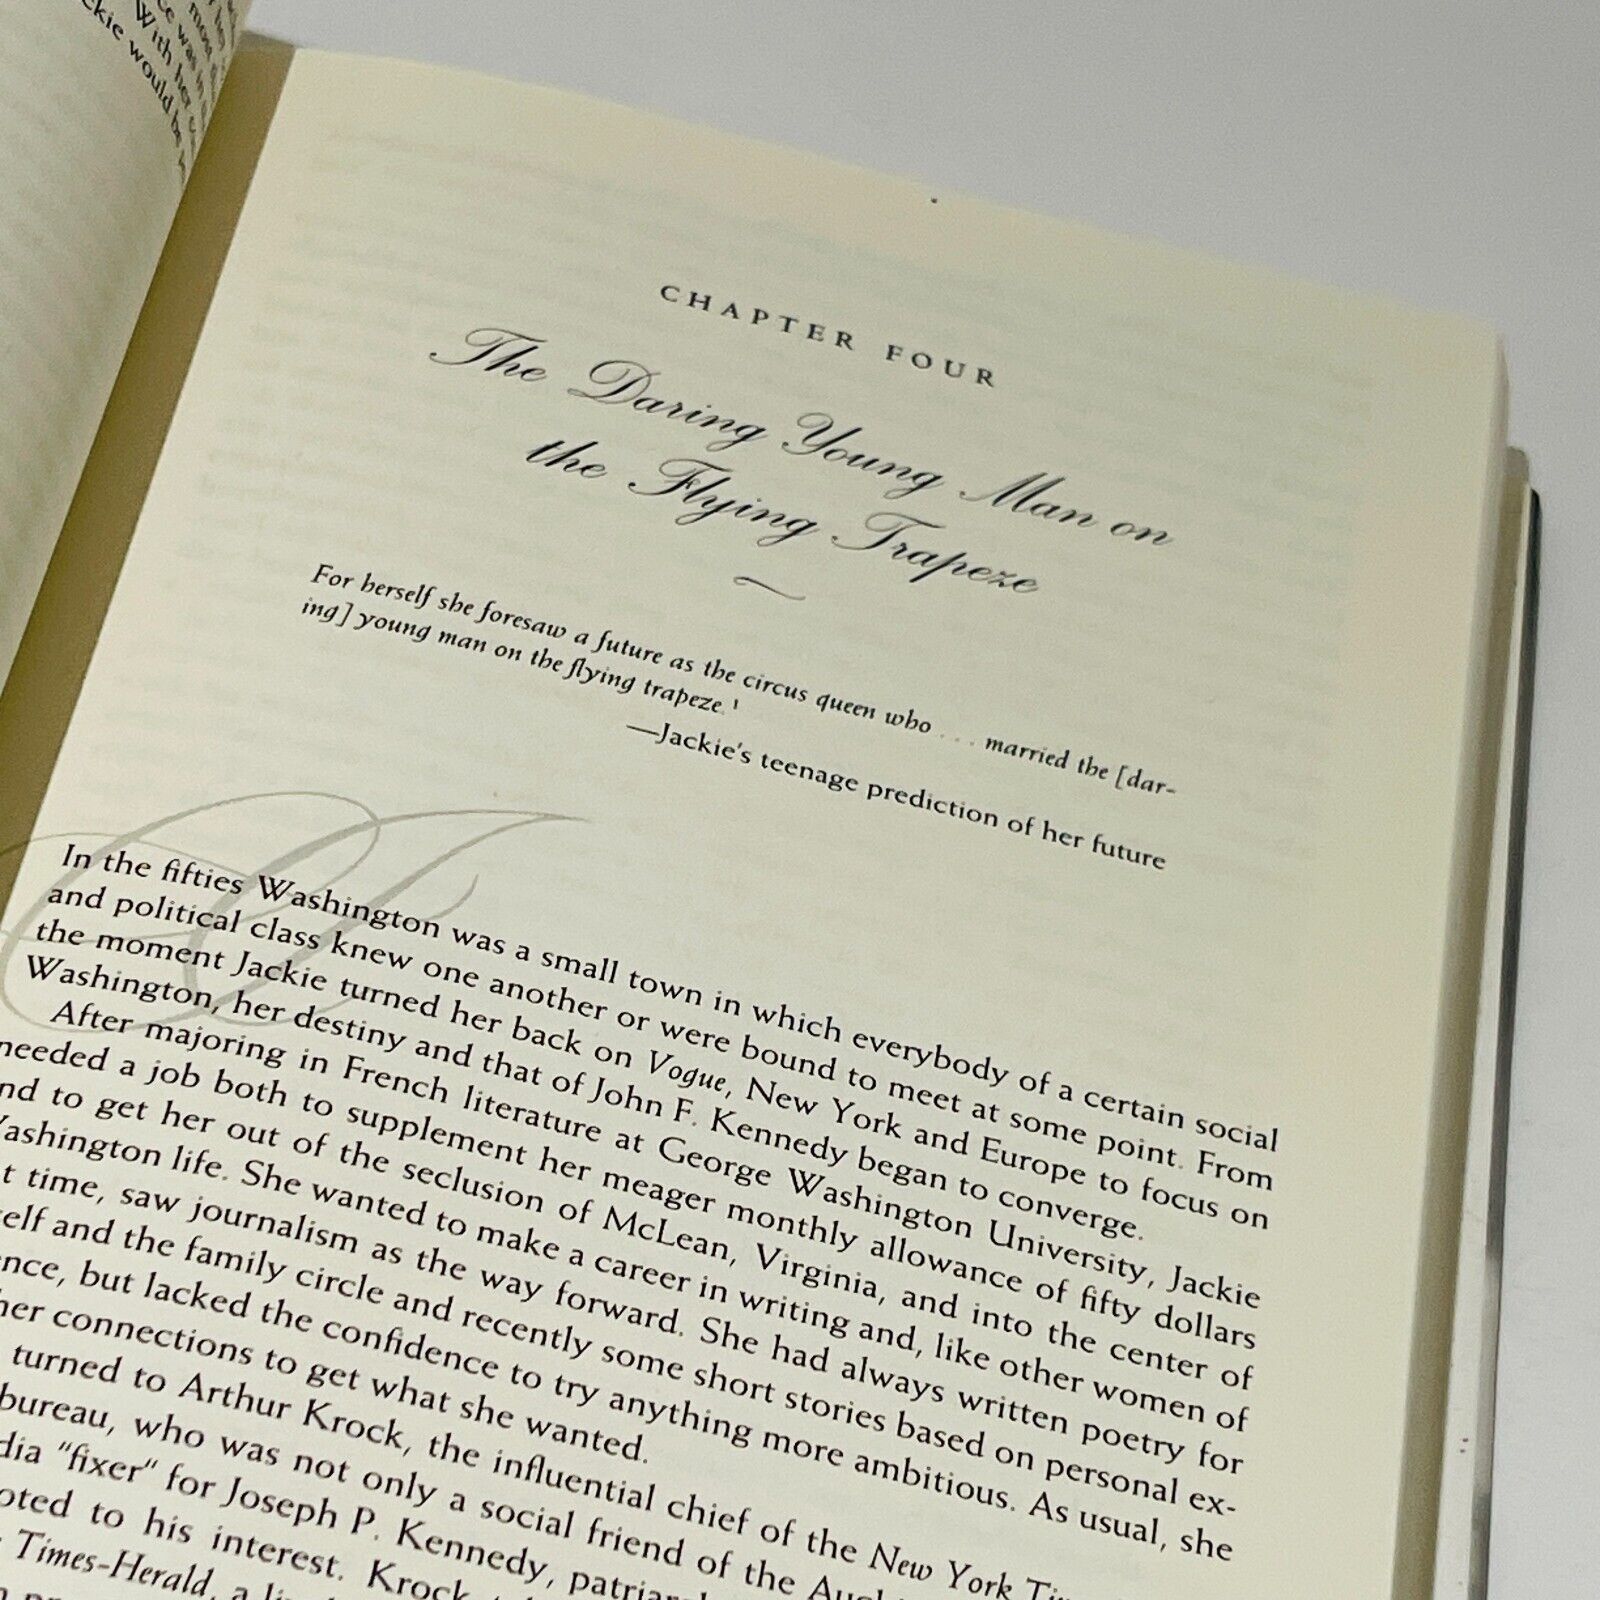 most
With her
Jackie would be
CHAPTER FOUR
The Daring Young Man on
the Flying Trapeze
For herself she foresaw a future as the circus queen who . . . married the [dar-
ing] young man on the flying trapeze.¹
—Jackie's teenage prediction of her future
In the fifties Washington was a small town in which everybody of a certain social
and political class knew one another or were bound to meet at some point. From
the moment Jackie turned her back on Vogue, New York and Europe to focus on
Washington, her destiny and that of John F. Kennedy began to converge.
After majoring in French literature at George Washington University, Jackie
needed a job both to supplement her meager monthly allowance of fifty dollars
and to get her out of the seclusion of McLean, Virginia, and into the center of
Washington life. She wanted to make a career in writing and, like other women of
time, saw journalism as the way forward. She had always written poetry for
and the family circle and recently some short stories based on personal ex-
but lacked the confidence to try anything more ambitious. As usual, she
her connections to get what she wanted.
turned to Arthur Krock, the influential chief of the New York
bureau, who was not only a social friend of the
"fixer" for Joseph P. Kennedy,
to his interest. Krock
Times-Herald, a